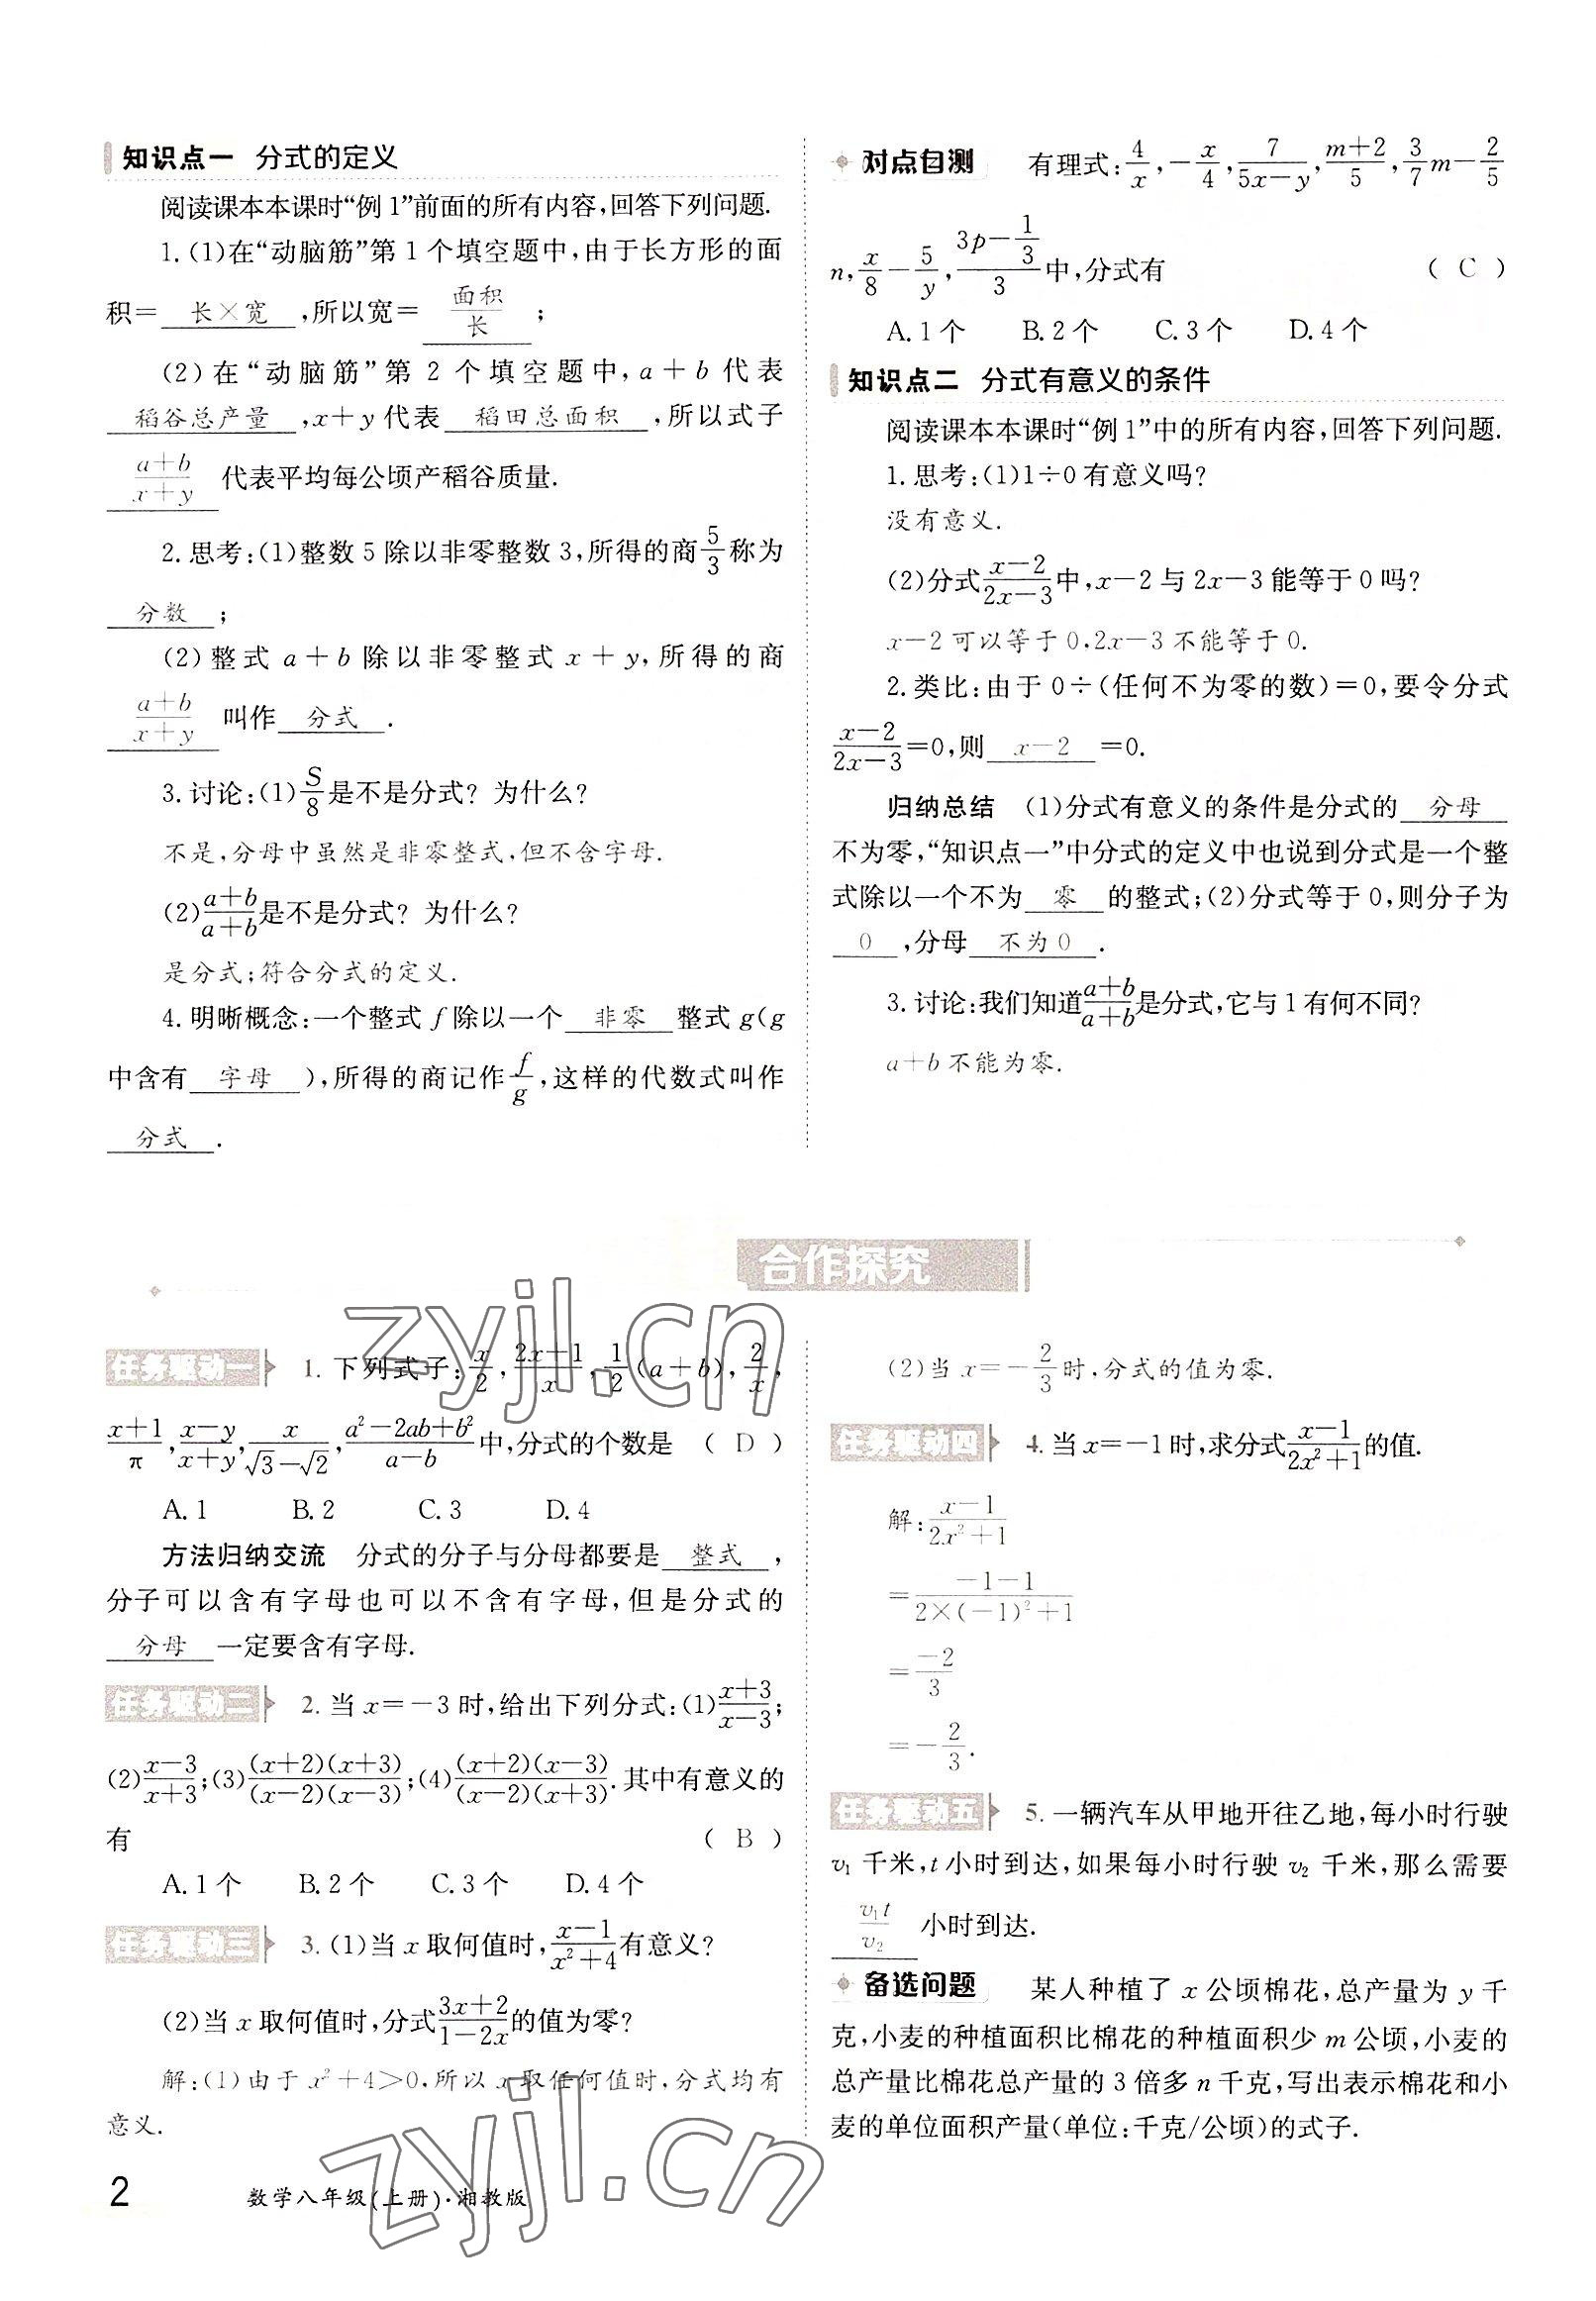 知识点一 分式的定义
阅读课本本课时“例1”前面的所有内容,回答下列问题.
1.(1)在“动脑筋”第1个填空题中,由于长方形的面
积= 长×宽 ,所以宽= 面积/长 ;
(2)在“动脑筋”第2个填空题中,a+b代表
稻谷总产量 ,x+y代表 稻田总面积 ,所以式子
(a+b)/(x+y) 代表平均每公顷产稻谷质量.
2.思考:(1)整数5除以非零整数3,所得的商5/3称为
分数 ;
(2)整式a+b除以非零整式x+y,所得的商
(a+b)/(x+y) 叫作 分式 .
3.讨论:(1)S/8是不是分式? 为什么?
不是,分母中虽然是非零整式,但不含字母.
(2)(a+b)/(a+b)是不是分式? 为什么?
是分式;符合分式的定义.
4.明晰概念:一个整式f除以一个 非零 整式g(g
中含有 字母 ),所得的商记作f/g,这样的代数式叫作
分式 .
对点自测 有理式:4/x,-x/4,7/(5x-y),(m+2)/5,3/7 m-2/5
n,x/8-5/y,(3p-1/3)/3中,分式有 ( C )
A.1个 B.2个 C.3个 D.4个
知识点二 分式有意义的条件
阅读课本本课时“例1”中的所有内容,回答下列问题.
1.思考:(1)1÷0有意义吗?
没有意义.
(2)分式(x-2)/(2x-3)中,x-2与2x-3能等于0吗?
x-2可以等于0,2x-3不能等于0.
2.类比:由于0÷(任何不为零的数)=0,要令分式
(x-2)/(2x-3)=0,则 x-2 =0.
归纳总结 (1)分式有意义的条件是分式的 分母
不为零,“知识点一”中分式的定义中也说到分式是一个整
式除以一个不为 零 的整式;(2)分式等于0,则分子为
0 ,分母 不为0 .
3.讨论:我们知道(a+b)/(a+b)是分式,它与1有何不同?
a+b不能为零.
合作探究
任务驱动一 1.下列式子:x/2,(2x+1)/x,1/2(a+b),2/x,
(x+1)/π,(x-y)/(x+y),x/(√3-√2),(a²-2ab+b²)/(a-b)中,分式的个数是 ( D )
A.1 B.2 C.3 D.4
方法归纳交流 分式的分子与分母都要是 整式 ,
分子可以含有字母也可以不含有字母,但是分式的
分母 一定要含有字母.
任务驱动二 2.当x=-3时,给出下列分式:(1)(x+3)/(x-3);
(2)(x-3)/(x+3);(3)(x+2)(x+3)/(x-2)(x-3);(4)(x+2)(x-3)/(x-2)(x+3).其中有意义的
有 ( B )
A.1个 B.2个 C.3个 D.4个
任务驱动三 3.(1)当x取何值时,(x-1)/(x²+4)有意义?
(2)当x取何值时,分式(3x+2)/(1-2x)的值为零?
解:(1)由于x²+4>0,所以x取任何值时,分式均有
意义.
(2)当x=-2/3时,分式的值为零.
任务驱动四 4.当x=-1时,求分式(x-1)/(2x²+1)的值.
解:(x-1)/(2x²+1)
=(-1-1)/(2×(-1)²+1)
=-2/3
=-2/3.
任务驱动五 5.一辆汽车从甲地开往乙地,每小时行驶
v₁千米,t小时到达,如果每小时行驶v₂千米,那么需要
v₁t/v₂ 小时到达.
备选问题 某人种植了x公顷棉花,总产量为y千
克,小麦的种植面积比棉花的种植面积少m公顷,小麦的
总产量比棉花总产量的3倍多n千克,写出表示棉花和小
麦的单位面积产量(单位:千克/公顷)的式子.
2 数学八年级(上册)·湘教版
zyjl.cn
zyjl.cn